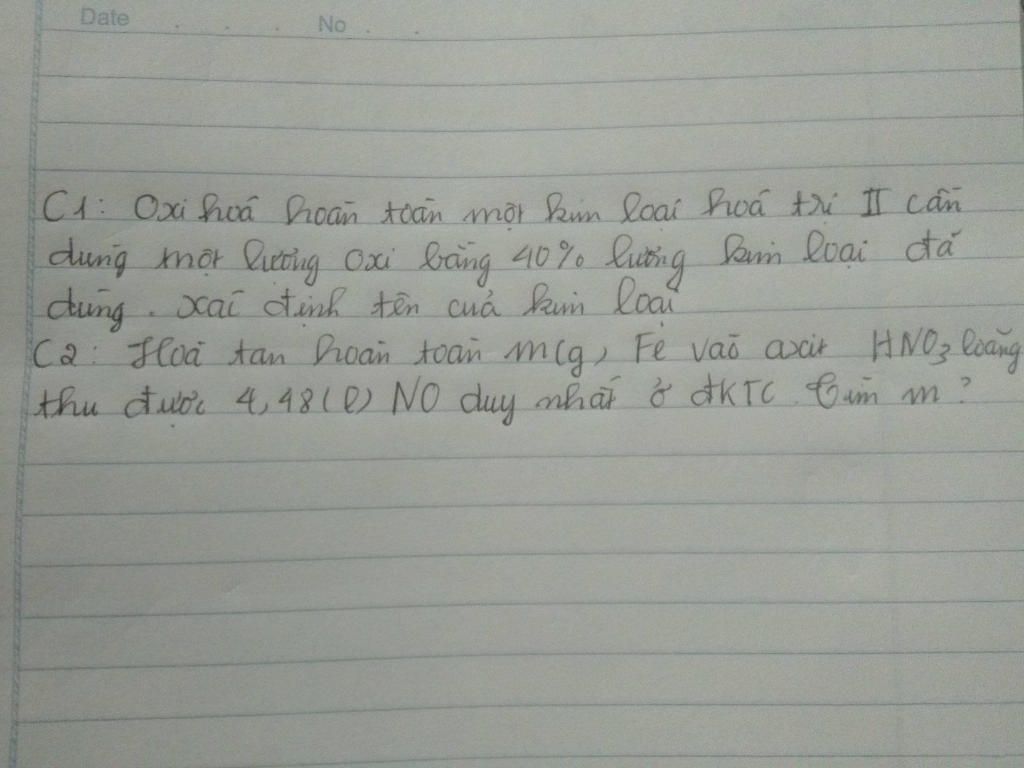 Date . . . No . .
C1: Oxi hoá hoàn toàn một kim loại hoá trị II cần
dùng một lượng oxi bằng 40% lượng kim loại đã
dùng. xác định tên của kim loại
C2: Hoà tan hoàn toàn m(g) Fe vào axit HNO3 loãng
thu được 4,48(l) NO duy nhất ở đKTC. Tìm m?